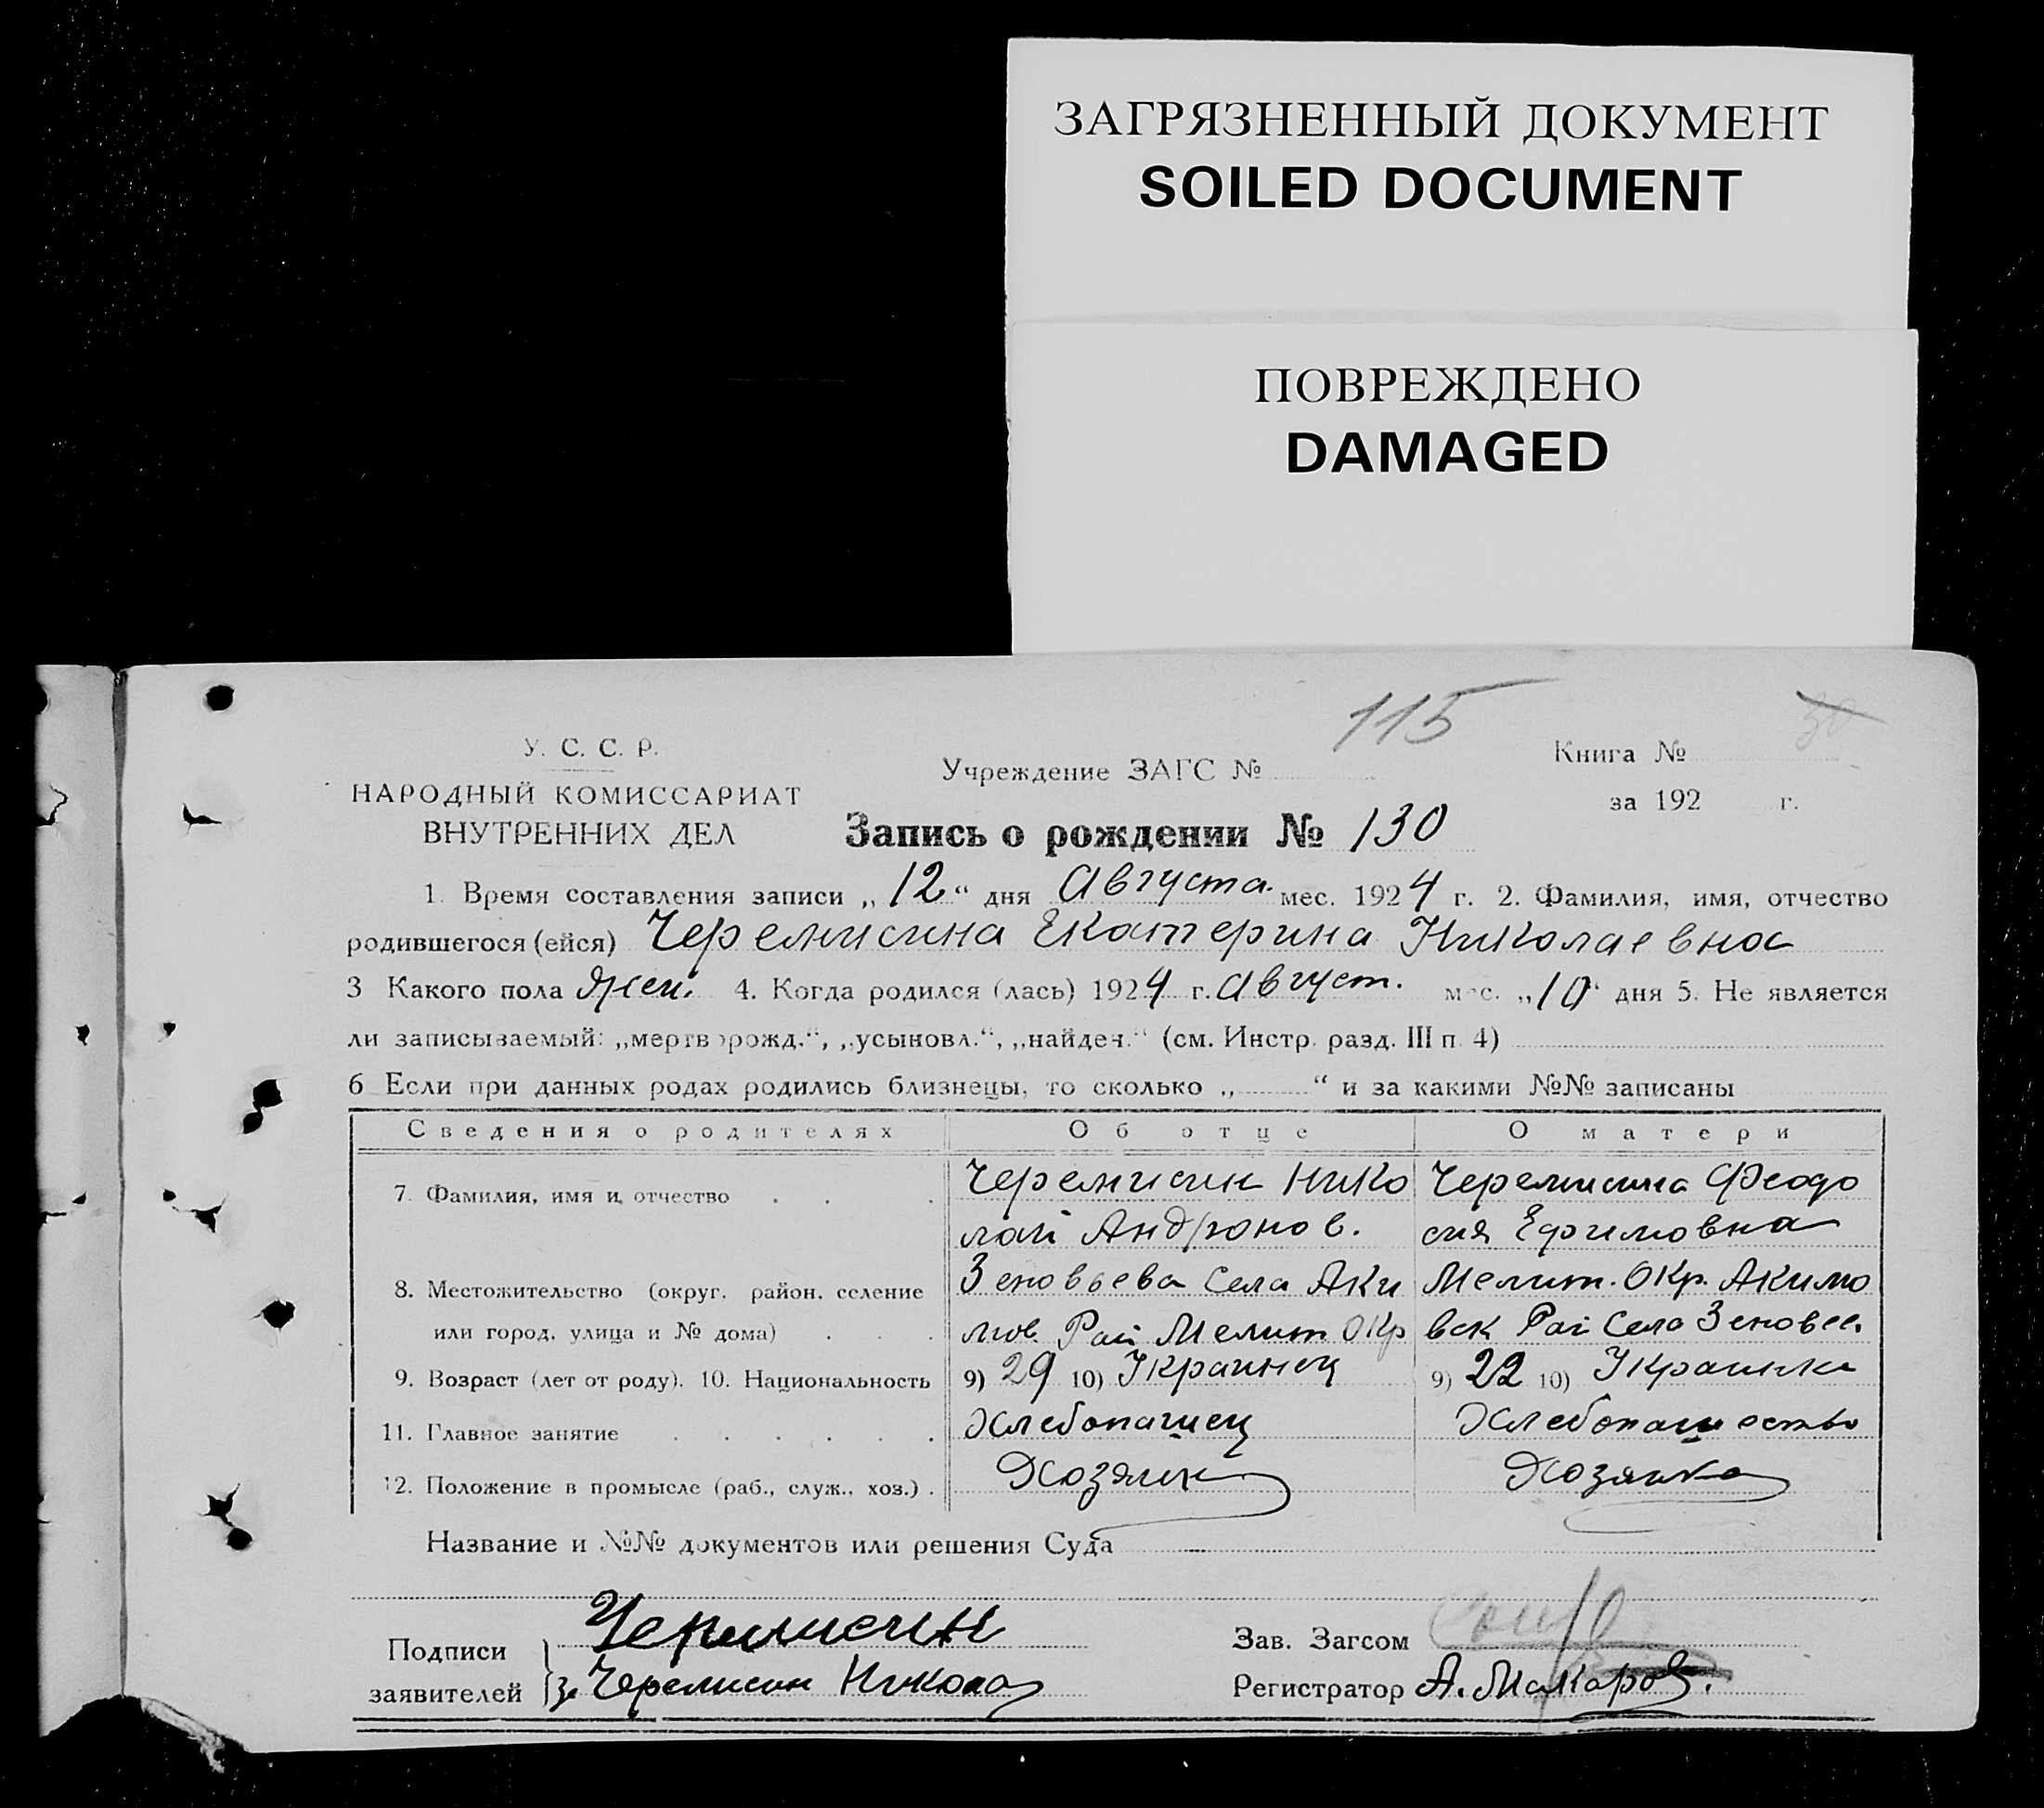 ЗАГРЯЗНЕННЫЙ ДОКУМЕНТ
SOILED DOCUMENT
ПОВРЕЖДЕНО
DAMAGED
115
30
У. С. С. Р.
НАРОДНЫЙ КОМИССАРИАТ
ВНУТРЕННИХ ДЕЛ
Учреждение ЗАГС №
Книга №
за 192 г.
Запись о рождении № 130
1. Время составления записи „12“ дня Августа. мес. 1924 г. 2. Фамилия, имя, отчество
родившегося (ейся) Черемисина Екатерина Николаевна
3 Какого пола жен. 4. Когда родился (лась) 1924 г. Август. мес. „10“ дня 5. Не является
ли записываемый: „мертворожд.“, „усыновл.“, „найден.“ (см. Инстр. разд. III п. 4)
6 Если при данных родах родились близнецы, то сколько „ “ и за какими №№ записаны
Сведения о родителях Об отце О матери
7. Фамилия, имя и отчество Черемисин Нико Черемисина Феодо
лай Андронов. сия Ефимовна
8. Местожительство (округ, район, селение Зеновьева Села Аки Мелит. Окр. Акимо
или город, улица и № дома) мов. Рай Мелит Окр вск Рай Села Зеновее.
9. Возраст (лет от роду). 10. Национальность 9) 29 10) Украинец 9) 22 10) Украинка
11. Главное занятие Хлебопашец Хлебопашество
12. Положение в промысле (раб., служ., хоз.) Хозяин Хозяйка
Название и №№ документов или решения Суда
Подписи Черемисин
заявителей } За Черемисин Никола
Зав. Загсом
Регистратор А. Макаров.